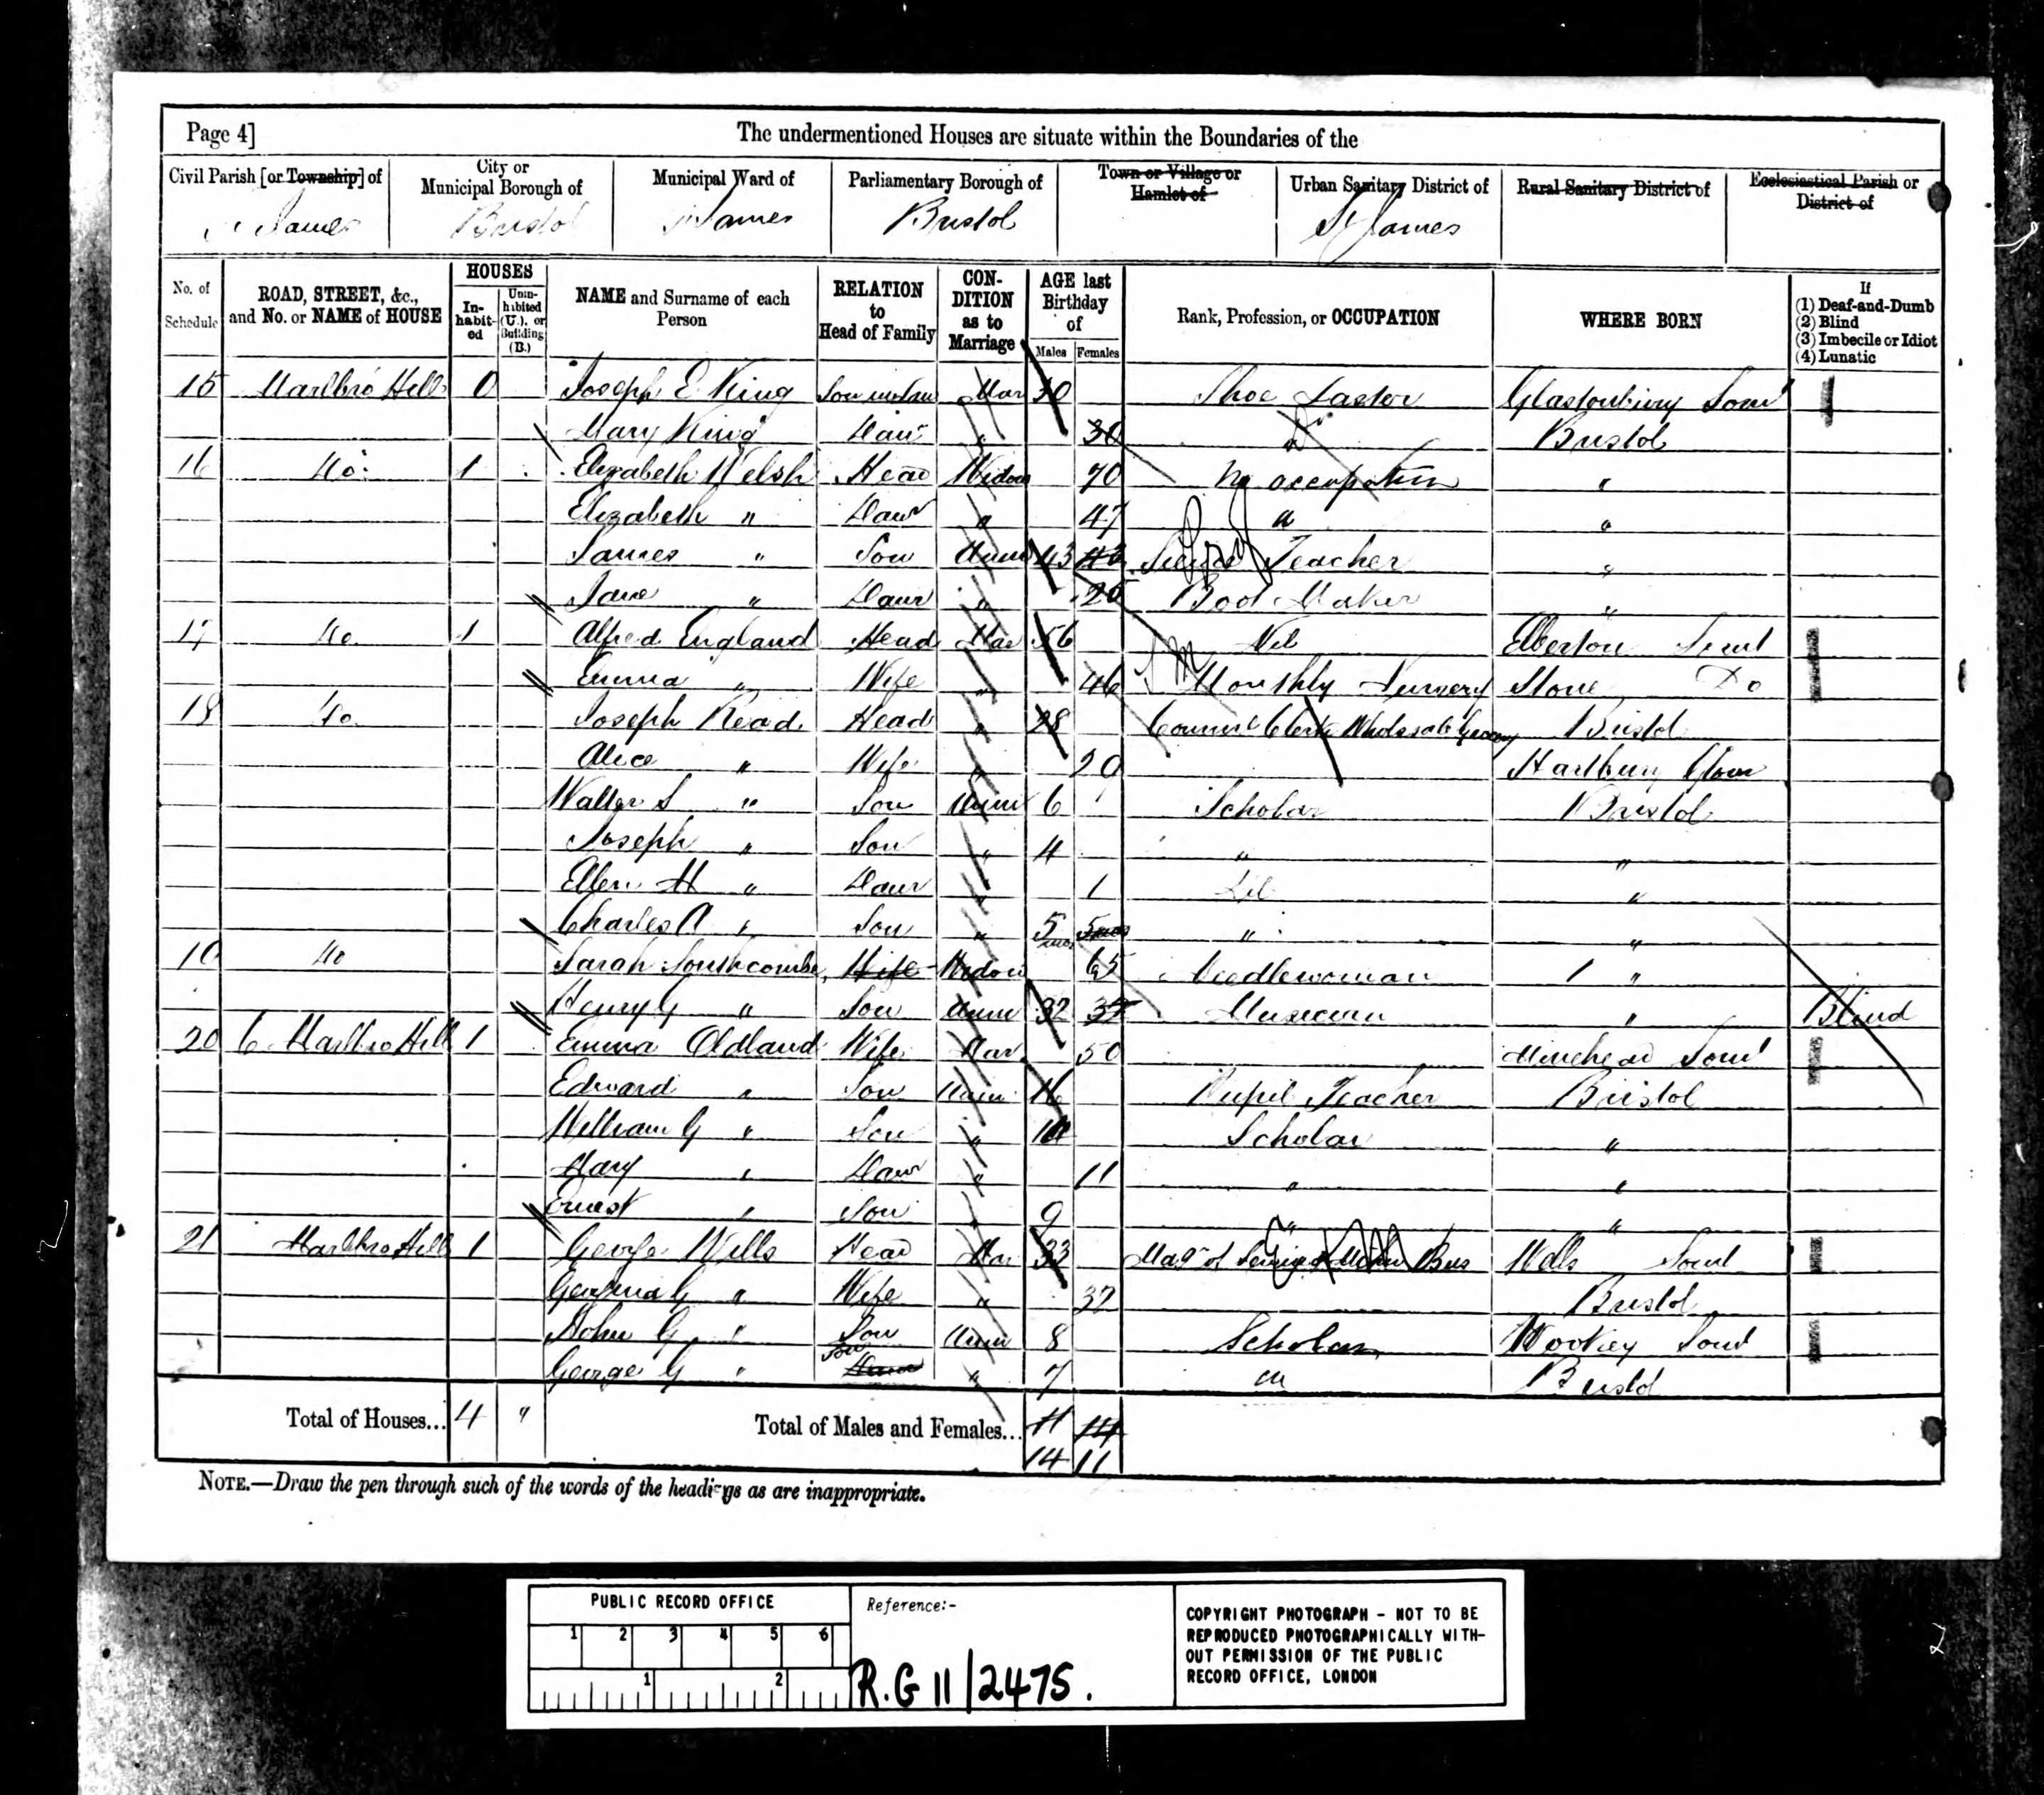 Page 4] The undermentioned Houses are situate within the Boundaries of the
Civil Parish [or Township] of City or Municipal Borough of Municipal Ward of Parliamentary Borough of Town or Village or Hamlet of Urban Sanitary District of Rural Sanitary District of Ecclesiastical Parish or District of
St James Bristol St James Bristol St James
No. of Schedule ROAD, STREET, &c., and No. or NAME of HOUSE HOUSES In-habit-ed Unin-habited (U.), or Building (B.) NAME and Surname of each Person RELATION to Head of Family CON-DITION as to Marriage AGE last Birthday of Males Females Rank, Profession, or OCCUPATION WHERE BORN If (1) Deaf-and-Dumb (2) Blind (3) Imbecile or Idiot (4) Lunatic
15 Marlbro Hill 0 Joseph E King Son in law Mar 30 Shoe Laster Glastonbury Somt
Mary King Daur " 30 Do Bristol
16 do 1 Elizabeth Welsh Head Widow 70 No occupation "
Elizabeth " Daur " 47 " "
James " Son Unm 43 43 Teacher "
Jane " Daur " 25 Boot Maker "
17 do 1 Alfred England Head Mar 56 Nil Elberton
Emma " Wife " 46 Monthly Nursery Stone Do
18 do Joseph Read Head " 28 Comml Clerk Wholesale Grocery Bristol
Alice " Wife " 29 Hartbury Glou
Walter S " Son Unm 6 Scholar Bristol
Joseph " Son " 4 " "
Ellen H " Daur " 1 "
Charles A " Son " 5 mos 5 mos " "
19 do Sarah Southcombe Wife Widow 65 Needlewoman "
Henry G " Son Unm 32 32 Musician " Blind
20 6 Marlbro Hill 1 Emma Oldland Wife Mar 50 Minehead Somt
Edward " Son Unm 16 Pupil Teacher Bristol
William G " Son " 14 Scholar "
Mary " Daur " 11 " "
Ernest " Son 9 " "
21 Marlbro Hill 1 George Wills Head Mar 33 Magr of Bus Wells Somt
Georgina G " Wife " 32 Bristol
John G " Son Unm 8 Scholar Wookey Somt
George G " Son Daur " 7 " Bristol
Total of Houses... 4 " Total of Males and Females... 11 14
14 11
NOTE.—Draw the pen through such of the words of the headings as are inappropriate.
PUBLIC RECORD OFFICE
1 2 3 4 5 6
1 2
Reference:-
R.G 11/2475.
COPYRIGHT PHOTOGRAPH - NOT TO BE
REPRODUCED PHOTOGRAPHICALLY WITH-
OUT PERMISSION OF THE PUBLIC
RECORD OFFICE, LONDON